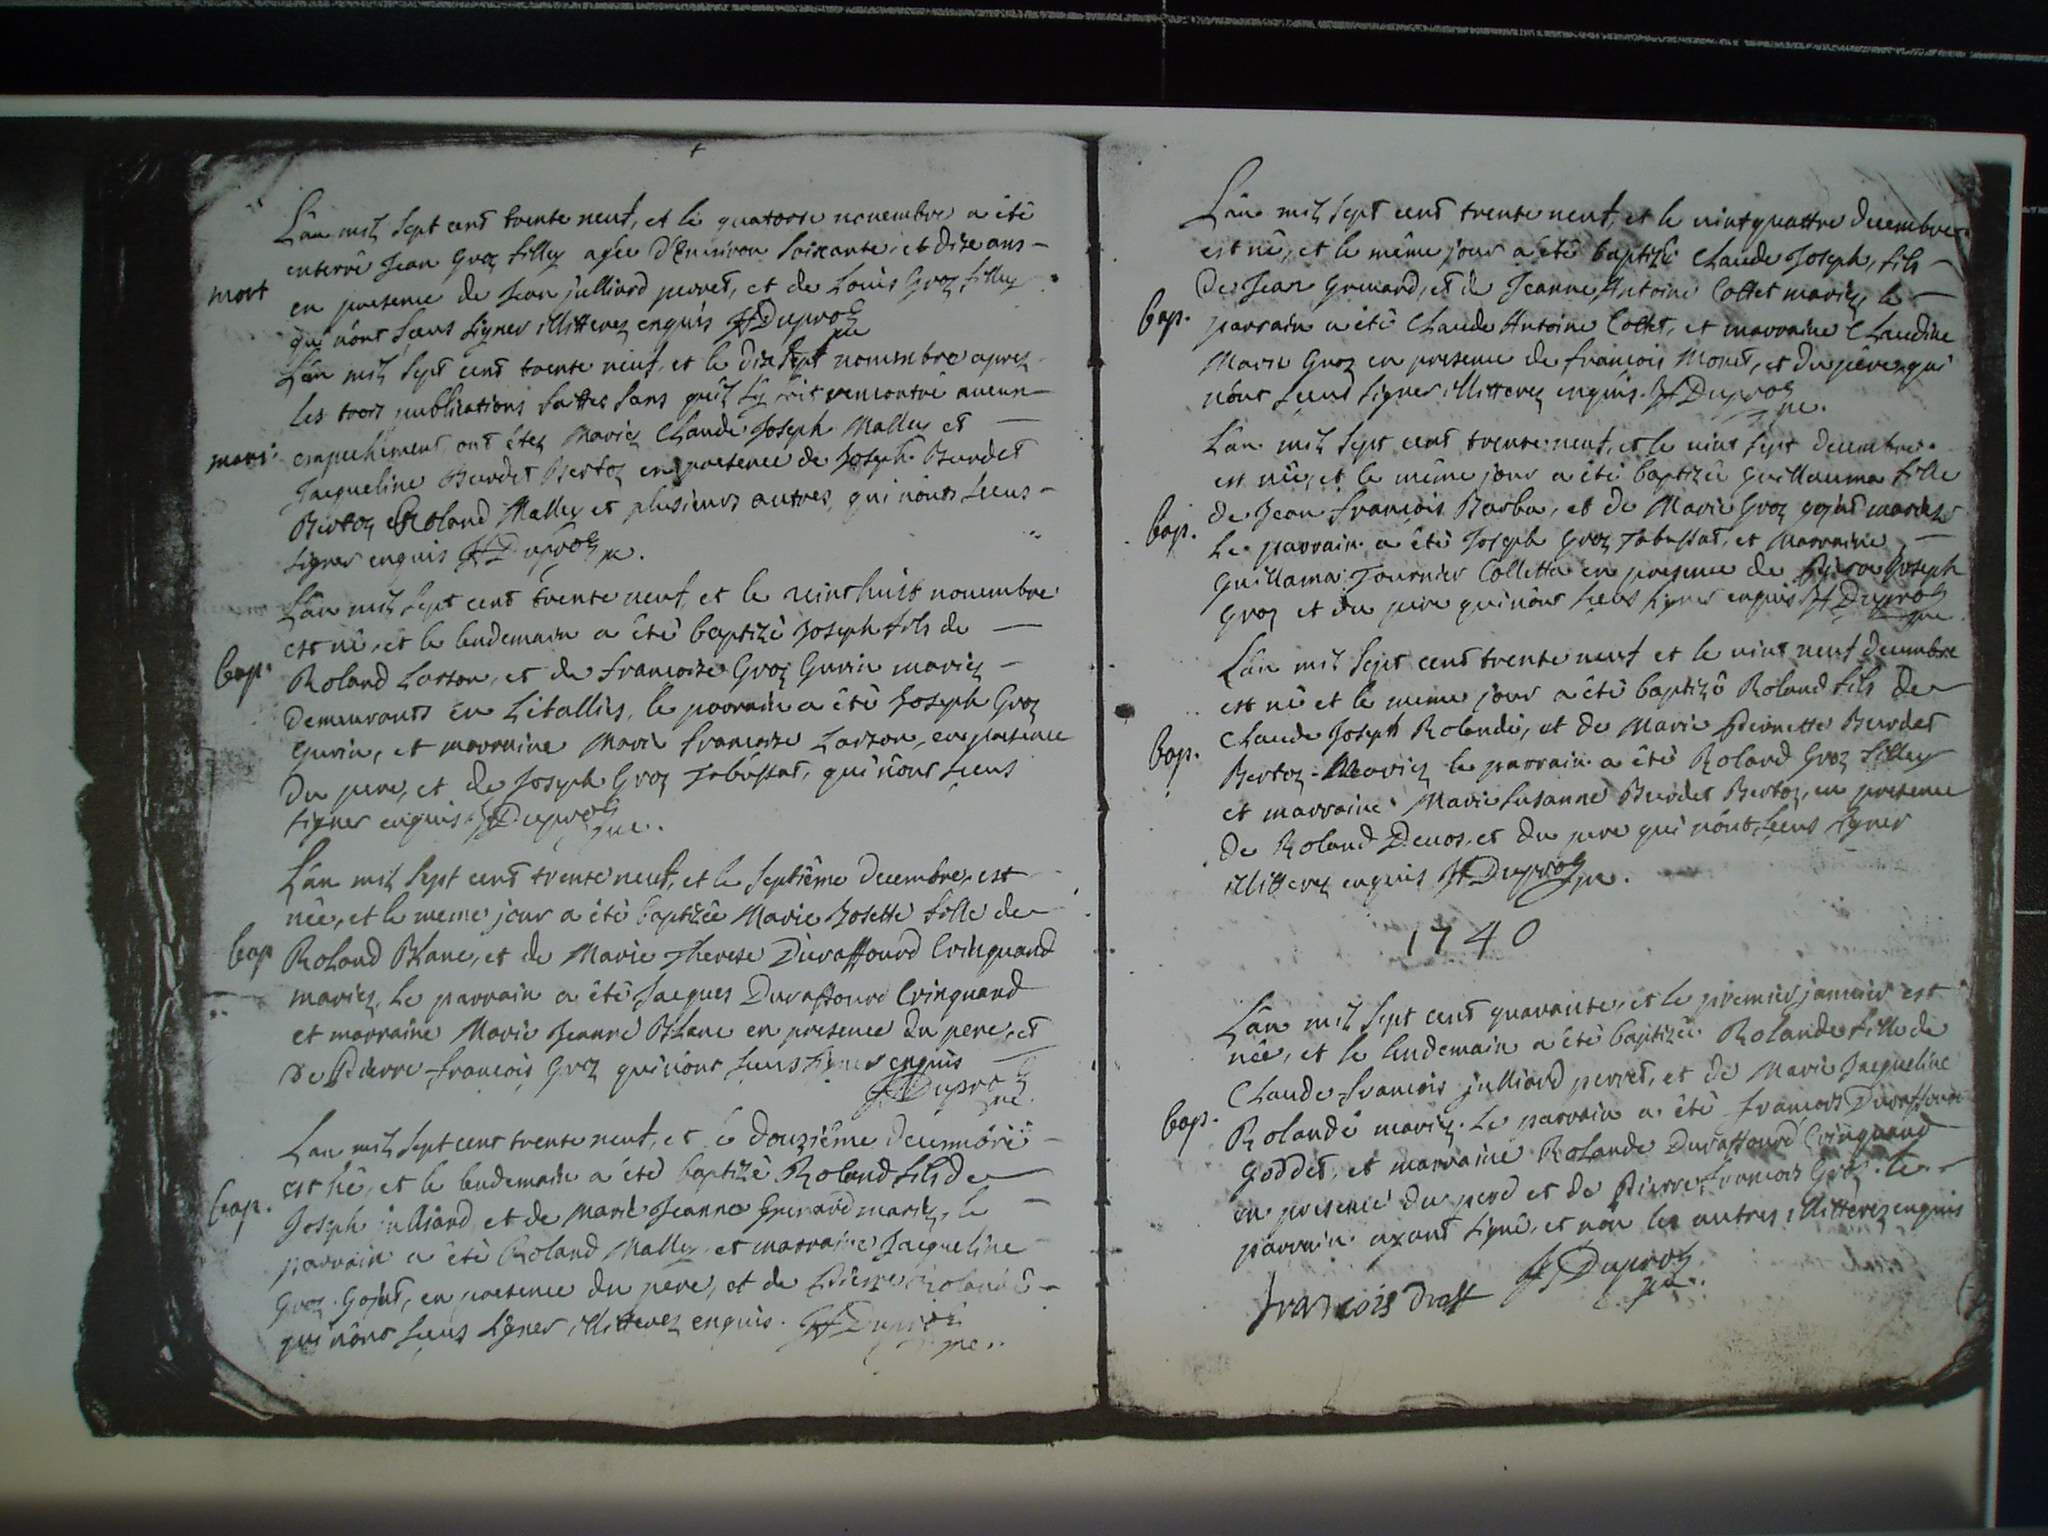 L'an mil sept cent trente neuf, et le quatorse novembre a été
enterré Jean Groz filley agée d'Environ soixante et dize ans
mort
en presence de Jean julliard perret, et de Louis Groz filley
qui n'ont sceus signer illitterez enquis JF Duproz
pre
L'an mil sept cent trente neuf, et le dix sept novembre apres
les trois publications faittes sans qu'il s'y soit rencontré aucun
mari.
empechement ont étez mariez Claude Joseph Malley et
Jacqueline Burdet Bertoz en presence de Joseph Burdet
Bertoz et Roland Malley et plusieurs autres, qui n'ont sceus
signer enquis JF Duproz pre.
L'an mil sept cent trente neuf, et le vint huit novembre
est né, et le lendemain a été baptizé Joseph fils de
bap.
Roland Lasson, et de francoise Groz Gurin mariez
demeurants en L'étallies, le parrain a été Joseph Groz
Gurin, et marraine Marie francoise Lasson, en presence
du pere, et de Joseph Groz Tabussat, qui n'ont sceus
signer enquis. JF Duproz
pre.
L'an mil sept cent trente neuf, et le septiême decembre, est
née, et le meme jour a été baptizée Marie Josette fille de
bap
Roland Blanc, et de Marie Therese Duraffourd Crinquand
mariez, le parrain a été Jacques Duraffourd Crinquand
et marraine Marie Jeanne Blanc en presence du pere, et
de Pierre francois Groz qui n'ont sceus signer enquis
JF Duproz
pre.
L'an mil sept cent trente neuf, et le douziême decembre
est né, et le lendemain a été baptizé Roland fils de
bap.
Joseph julliard et de Marie Jeanne Grenard mariez, le
parrain a été Roland Malley, et marraine Jacqueline
Groz Gojat, en presence du pere, et de Pierre Rolandé
qui n'ont sceus signer illitterez enquis. JF Duproz
pre.
L'an mil sept cent trente neuf, et le vint quattre decembre
est né, et le même jour a été baptizé Claude Joseph, fils
de Jean Grenard, et de Jeanne Antoine Collet mariez, le
bap.
parrain a été Claude Antoine Collet, et marraine Claudine
Marie Groz en presence de francois Monet, et du pere, qui
n'ont sceus signer illitterez enquis. JF Duproz
pre.
L'an mil sept cent trente neuf, et le vint sept decembre
est née, et le même jour a été baptizée Guillauma fille
de Jean francois Barba, et de Marie Groz gojat mariez
bap.
le parrain a été Joseph Groz Tabussat, et Marraine
Guillama Tournier Colletta en presence de Pierre Joseph
Groz et du pere qui n'ont sceus signer enquis JF Duproz
pre.
L'an mil sept cent trente neuf et le vint neuf decembre
est né et le meme jour a été baptizé Roland fils de
Claude Joseph Rolandé, et de Marie Pernette Burdet
bap.
Bertoz Mariez le parrain a été Roland Groz filley
et marraine Marie Susanne Burdet Bertoz, en presence
de Roland Devos, et du pere qui n'ont sceus signer
illitterez enquis JF Duproz pre.
1740
L'an mil sept cent quarante, et le premier janvier est
née, et le lendemain a été baptizée Rolande fille de
Claude francois julliard perret, et de Marie Jacqueline
bap.
Rolandé mariez. Le parrain a été francois Duraffourd
Goddet, et marraine Rolande Duraffourd Crinquand
en presence du pere et de Pierre francois Groz. le
parrain ayant signé, et non les autres illitterez enquis
JF Duproz
pre.
francois draff